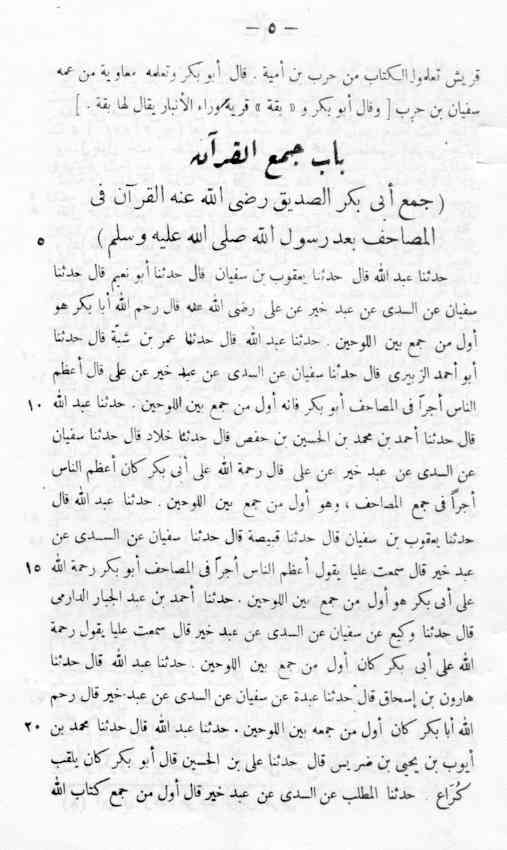 — ٥ —
قريش تعلموا الكتاب من حرب بن أمية . قال أبو بكر وتعلمه معاوية من عمه
سفيان بن حرب [ وقال أبو بكر و « بقة » قرية وراء الأنبار يقال لها بقة . ]
باب جمع القرآن
( جمع أبى بكر الصديق رضى الله عنه القرآن فى
المصاحف بعد رسول الله صلى الله عليه وسلم ) ٥
حدثنا عبد الله قال حدثنا يعقوب بن سفيان قال حدثنا أبو نعيم قال حدثنا
سفيان عن السدى عن عبد خير عن على رضى الله عنه قال رحم الله أبا بكر هو
أول من جمع بين اللوحين . حدثنا عبد الله قال حدثنا عمر بن شبّة قال حدثنا
أبو أحمد الزبيرى قال حدثنا سفيان عن السدى عن عبد خير عن على قال أعظم
الناس أجراً فى المصاحف أبو بكر فانه أول من جمع بين اللوحين . حدثنا عبد الله ١٠
قال حدثنا أحمد بن محمد بن الحسين بن حفص قال حدثنا خلاد قال حدثنا سفيان
عن السدى عن عبد خير عن على قال رحمة الله على أبى بكر كان أعظم الناس
أجراً فى جمع المصاحف ، وهو أول من جمع بين اللوحين . حدثنا عبد الله قال
حدثنا يعقوب بن سفيان قال حدثنا قبيصة قال حدثنا سفيان عن السدى عن
عبد خير قال سمعت عليا يقول أعظم الناس أجراً فى المصاحف أبو بكر رحمة الله ١٥
على أبى بكر هو أول من جمع بين اللوحين . حدثنا أحمد بن عبد الجبار الدارمى
قال حدثنا وكيع عن سفيان عن السدى عن عبد خير قال سمعت عليا يقول رحمة
الله على أبى بكر كان أول من جمع بين اللوحين . حدثنا عبد الله قال حدثنا
هارون بن إسحاق قال حدثنا عبدة عن سفيان عن السدى عن عبد خير قال رحم
الله أبا بكر كان أول من جمعه بين اللوحين . حدثنا عبد الله قال حدثنا محمد بن ٢٠
أيوب بن يحيى بن ضريس قال حدثنا على بن الحسين قال أبو بكر كان يلقب
كُرَاع . حدثنا المطلب عن السدى عن عبد خير قال أول من جمع كتاب الله